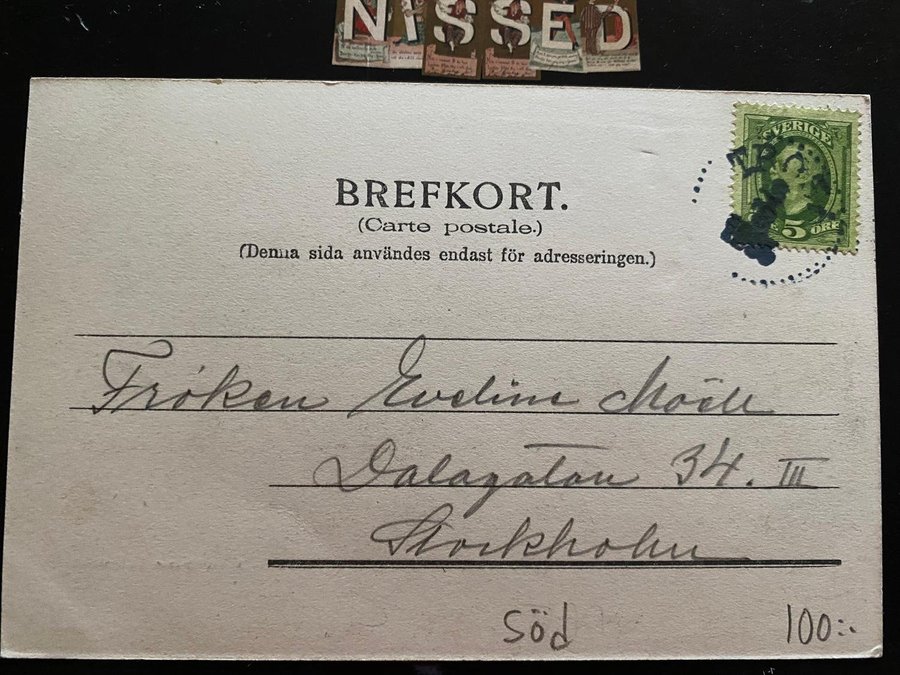 NISSED
SVERIGE
5 ÖRE
BREFKORT.
(Carte postale.)
(Denna sida användes endast för adresseringen.)
Fröken Eveline
Dalagatan 34. III
Stockholm
söd
100:-